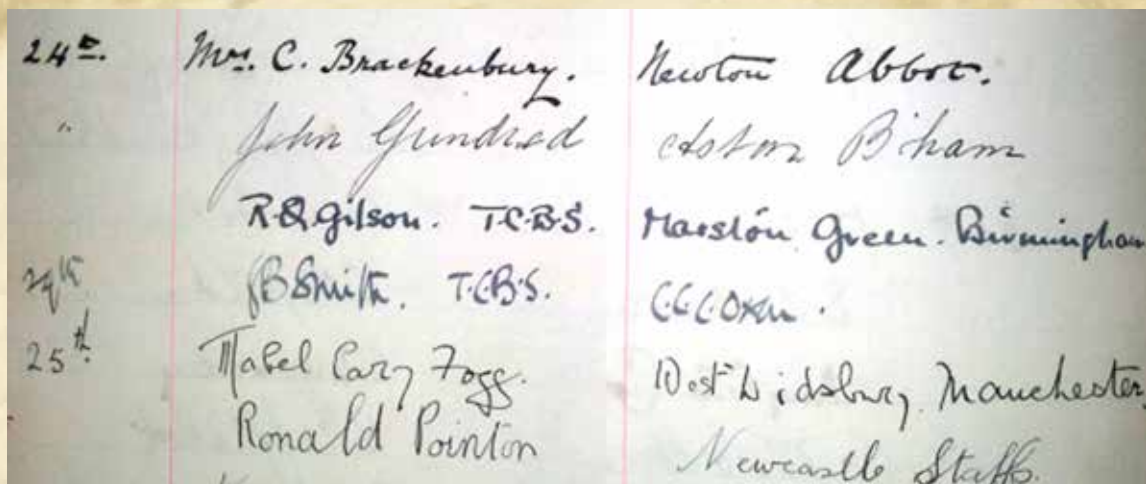 24th. Mrs. C. Brackenbury. Newton Abbot.
" John Gundred Aston B'ham
R.Q. Gilson. T.C.B.S. Marston Green. Birmingham
24th GBSmith. T.C.B.S. C.C.C. Oxon.
25th Mabel Cary Fogg. West Didsbury, Manchester
Ronald Pointon Newcastle Staffs.